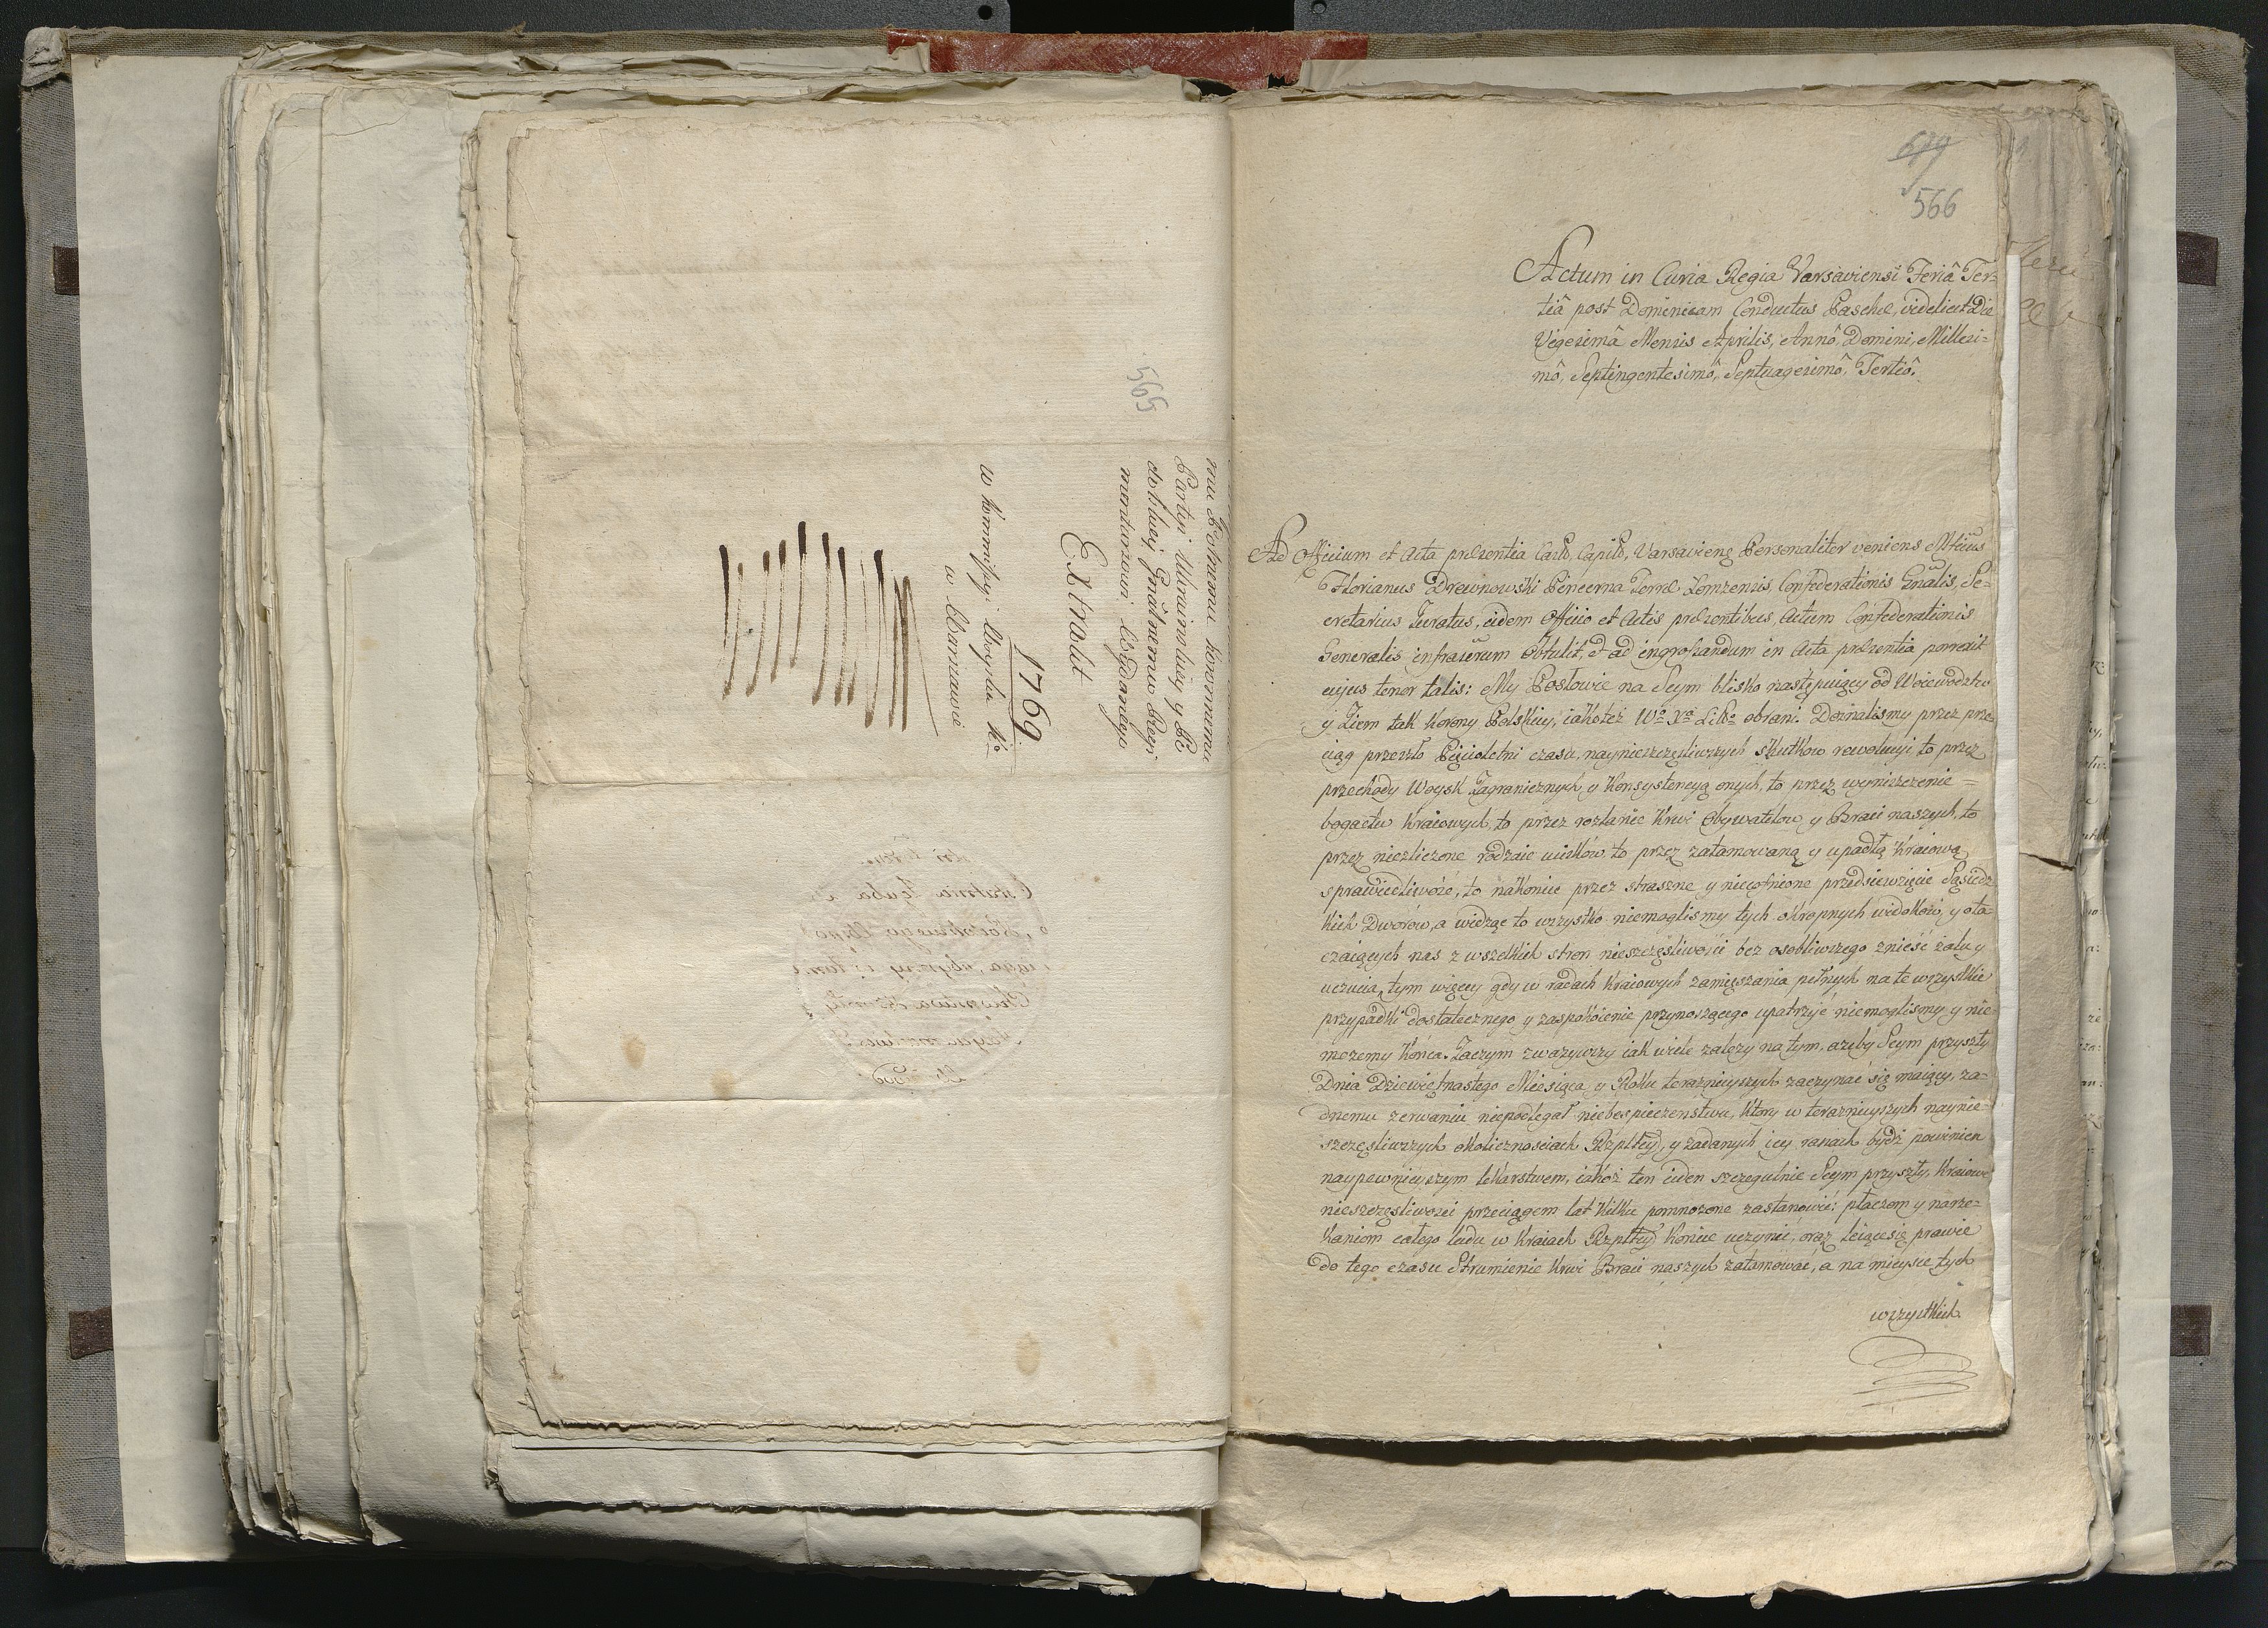 565
mu Polnemu Koronnemu
Partyi Ukrainskiey y Po
dolskiey Gnalnemu Regi
mentarzowi Wydanego
Extrakt
1769
w Kommissyi Woyska Ko
w Warszawie
679
566
Actum in Curia Regia Varsaviensi Feriâ Ter=
tiâ post Dominicam Conductus Paschæ, videlicet Die
Vigesimâ Mensis Aprilis, Annô Domini, Millesi=
mô, Septingentesimô, Septuagesimô, Tertiô.
Ad Officium et Acta præsentia Castr. Capit. Varsavien. Personaliter veniens Mficus
Florianus Drewnowski Pincerna Terræ Lomzensis, Confederationis Gnalis, Se=
cretarius Juratus, eidem Officio et Actis præsentibus, Actum Confederationis
Generalis infrascrum Obtulit, et ad ingrossandum in Acta præsentia porrexit
cujus tenor talis: My Posłowie na Seym blisko następuiący od Woiewodztw
y Ziem tak Korony Polskiey, iako też Wo Xa Litto obrani. Doznalismy przez prze
ciąg przeszło Pięcioletni czasu, naynieszczęsliwszych skutkow rewolucyi to przez
przechody Woysk Zagranicznych y Konsystencyą onych, to przez wyniszczenie=
bogactw Kraiowych, to przez rozlanie Krwi Obywatelow y Braci naszych, to
przez niezliczone rodzaie uciskow, to przez zatamowaną y upadłą Kraiową
sprawiedliwość, to nakoniec przez straszne y niecofnione przedsiewzięcie Sąsiedz
kich Dworów, a widząc to wszystko niemoglismy tych okropnych widokow, y ota
czaiących nas z wszelkich stron nieszczęśliwości bez osobliwszego znieść żalu y
uczucia, tym więcey gdy w radach Kraiowych zamięszania pełnych na te wszystkie
przypadki dostatecznego y zaspokoienie przynoszącego upatrzyć niemoglismy y nie
mozemy Końca. Zaczym zwazywszy iak wiele zalezy na tym, azeby Seym przyszły
Dnia Dziewiętnastego Miesiąca y Roku teraznieyszych zaczynać się maiący, za=
dnemu zerwaniu niepodlegał niebespieczenstwu, Ktory w teraznieyszych naynie=
szczęsliwszych okolicznosciach Rzpltey, y zadanych iey ranach bydź powinien
naypewnieyszym lekarstwem, iakoż ten ieden szczegulnie Seym przyszły, Kraiowe
nieszczęsliwosci przeciągem lat kilku pomnozone zastanowić; płaczom y narze=
kaniom całego ludu w Kraiach Rzpltey Koniec uczynić, oraz leiące się prawie
do tego czasu Strumienie Krwi Braci naszych zatamować, a na mieysce tych
wszystkich